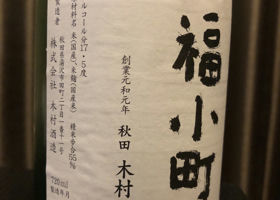 福小町
創業元和元年 秋田 木村
ルコール分17.5度
原材料名 米(国産)、米麹(国産米) 精米歩合55%
製造者
秋田県湯沢市田町二丁目一番十一号
株式会社 木村酒造
720ml
製造年月